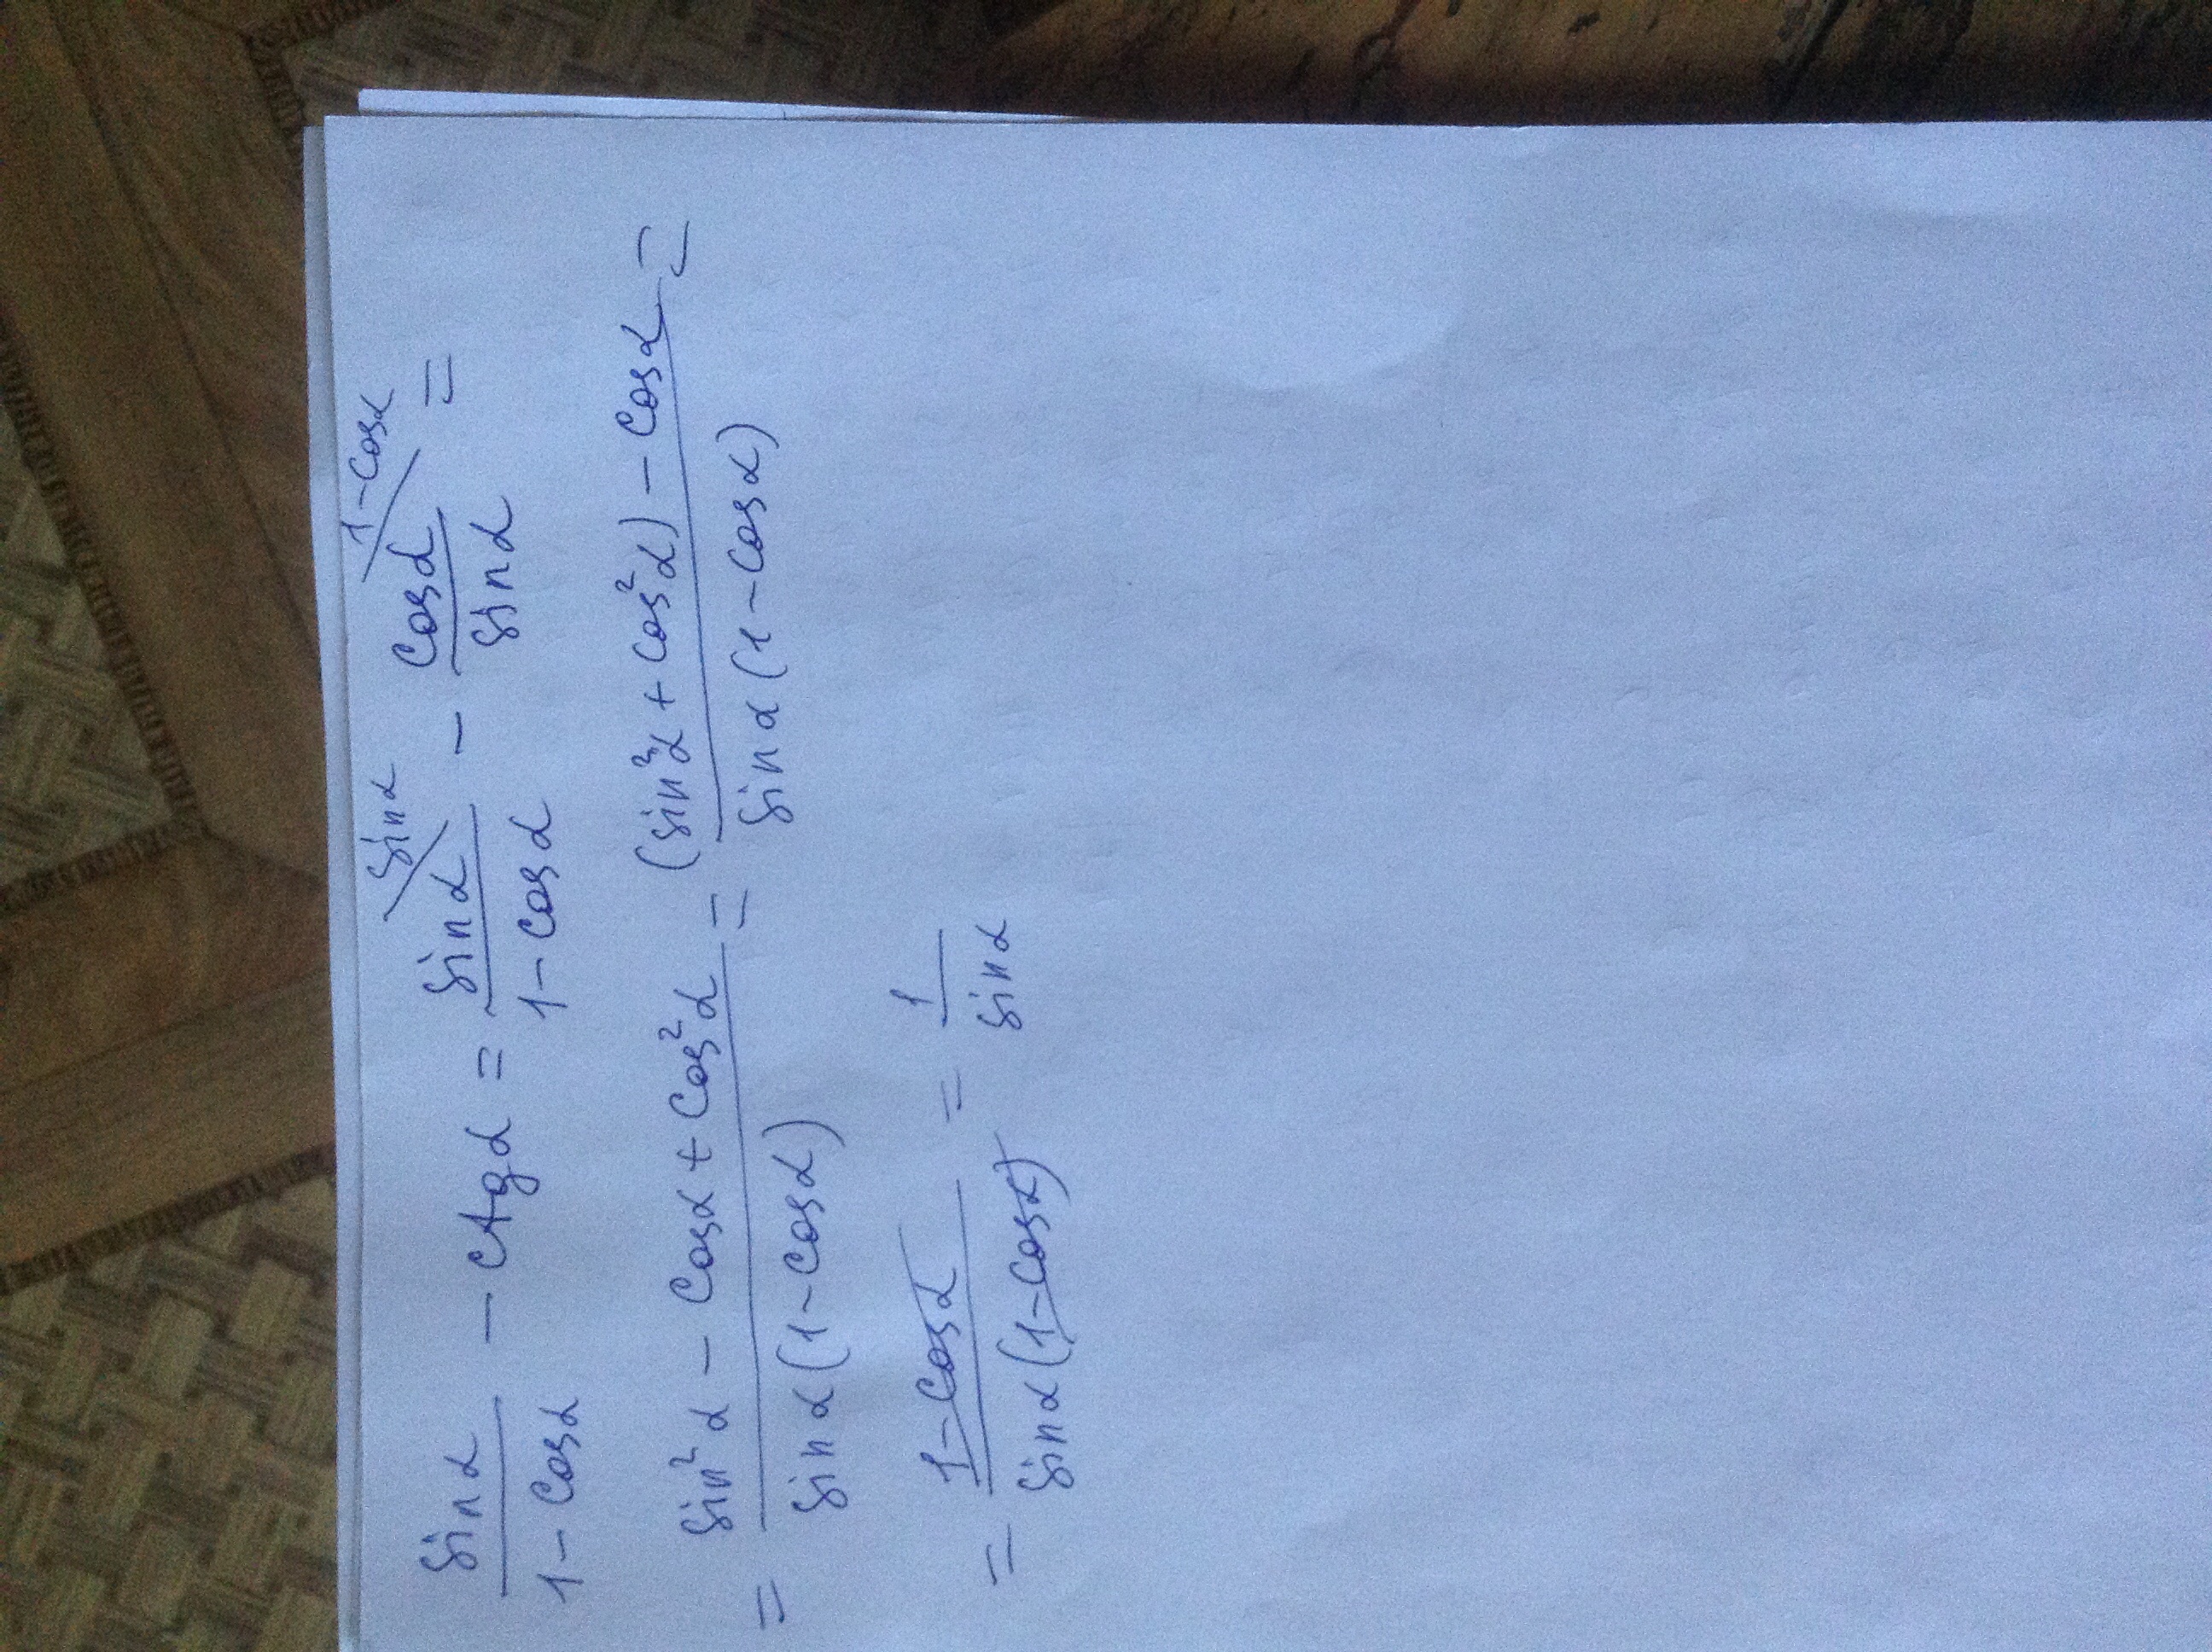 sinα/(1-cosα) - ctgα = sinα/(1-cosα) (sinα - cosα/sinα (1-cosα =
= (sin²α - cosα + cos²α)/(sinα(1-cosα)) = ((sin²α + cos²α) - cosα)/(sinα(1-cosα)) =
= (1-cosα)/(sinα(1-cosα)) = 1/sinα